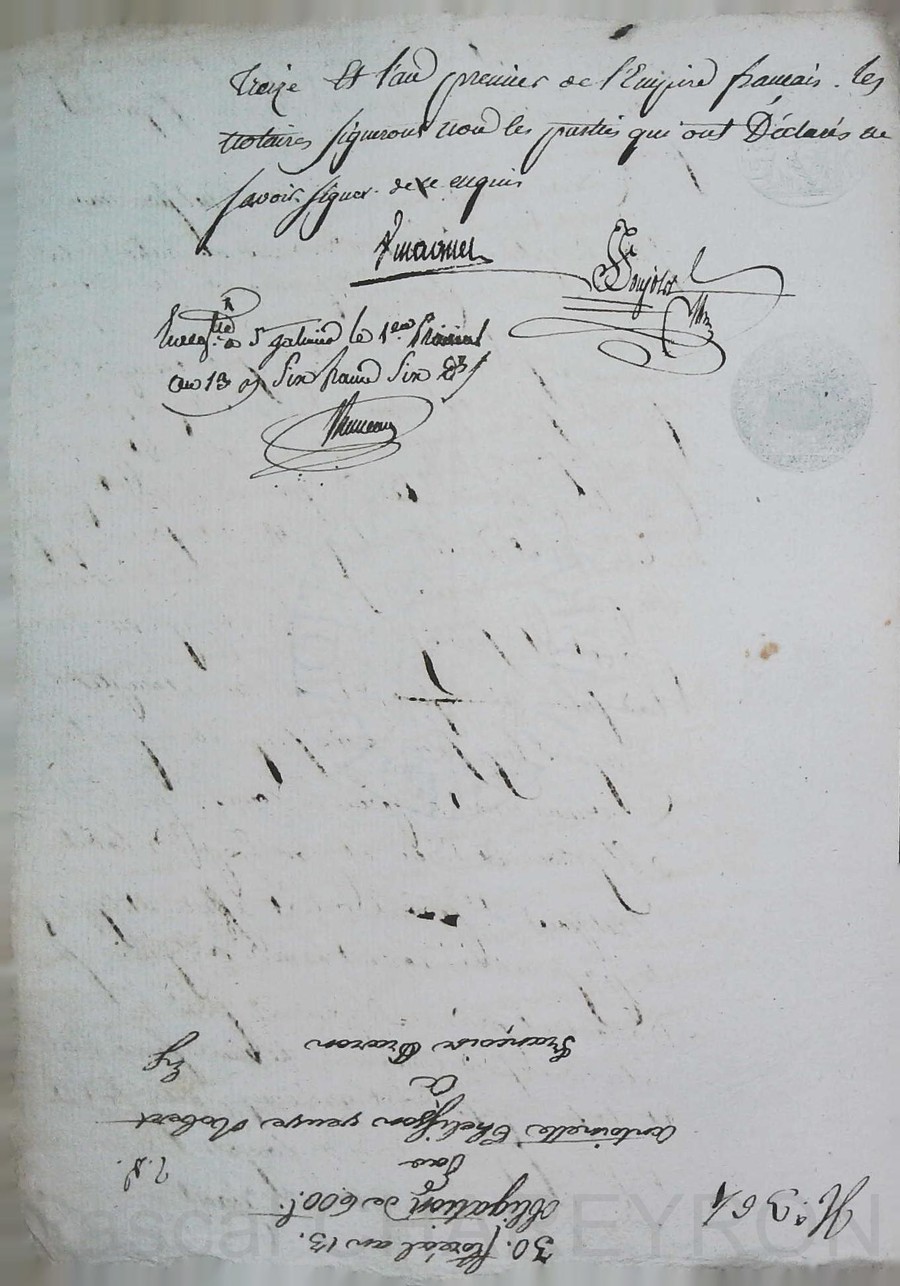 treize Et l'an premier de l'Empire francais. les
notaires signeront non les parties qui ont Déclarés ne
savoir signer de ce enquis
Enregtré a St galmier le 1er Prairial
an 13 Six francs Six
30. floréal an 13.
obligation de 600 f.
Par
antoinette Thelisson veuve Robert
a
françoise
N° 364